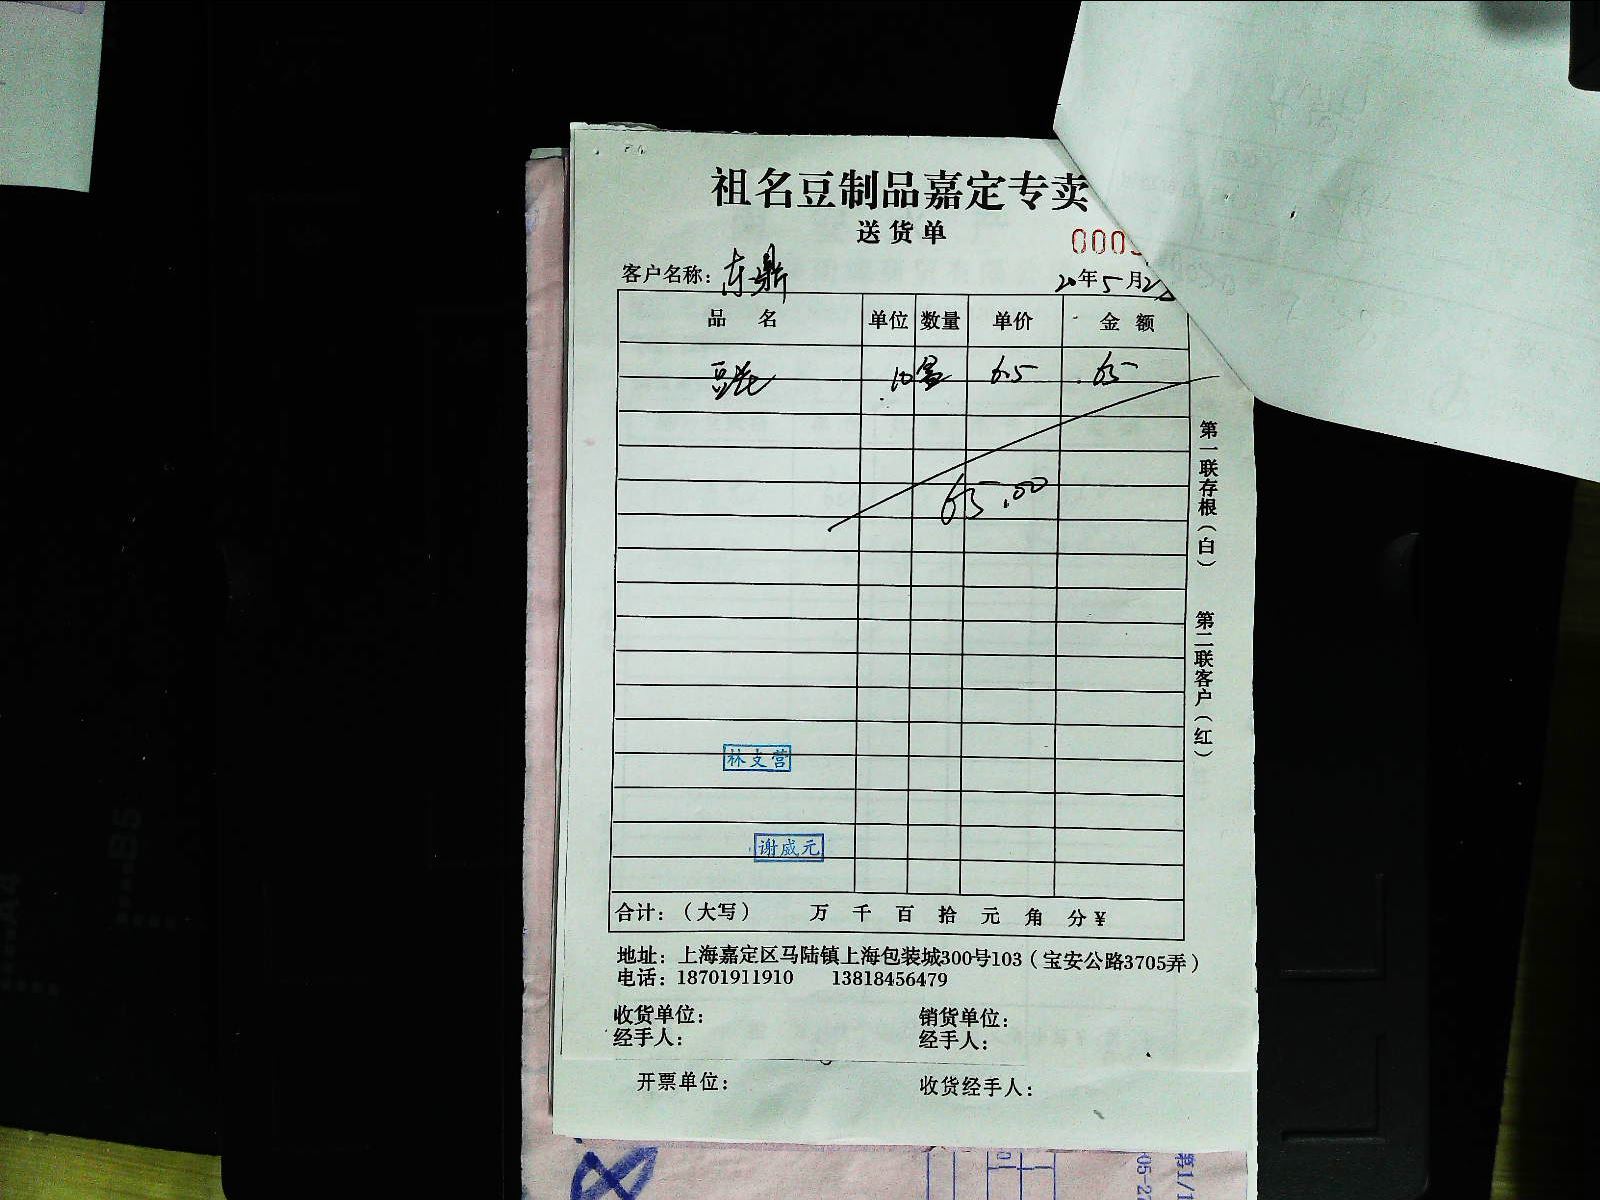 祖名豆制品嘉定专卖
送货单
000
客户名称：东鼎
20年5月2
品名 单位 数量 单价 金额
豆花 10盒 6.5 65
65.00
第一联存根（白） 第二联客户（红）
林支营
谢威元
合计：（大写） 万 千 百 拾 元 角 分￥
地址：上海嘉定区马陆镇上海包装城300号103（宝安公路3705弄）
电话：18701911910 13818456479
收货单位： 销货单位：
经手人： 经手人：
开票单位： 收货经手人：
第1/1
05-2
B5
A4